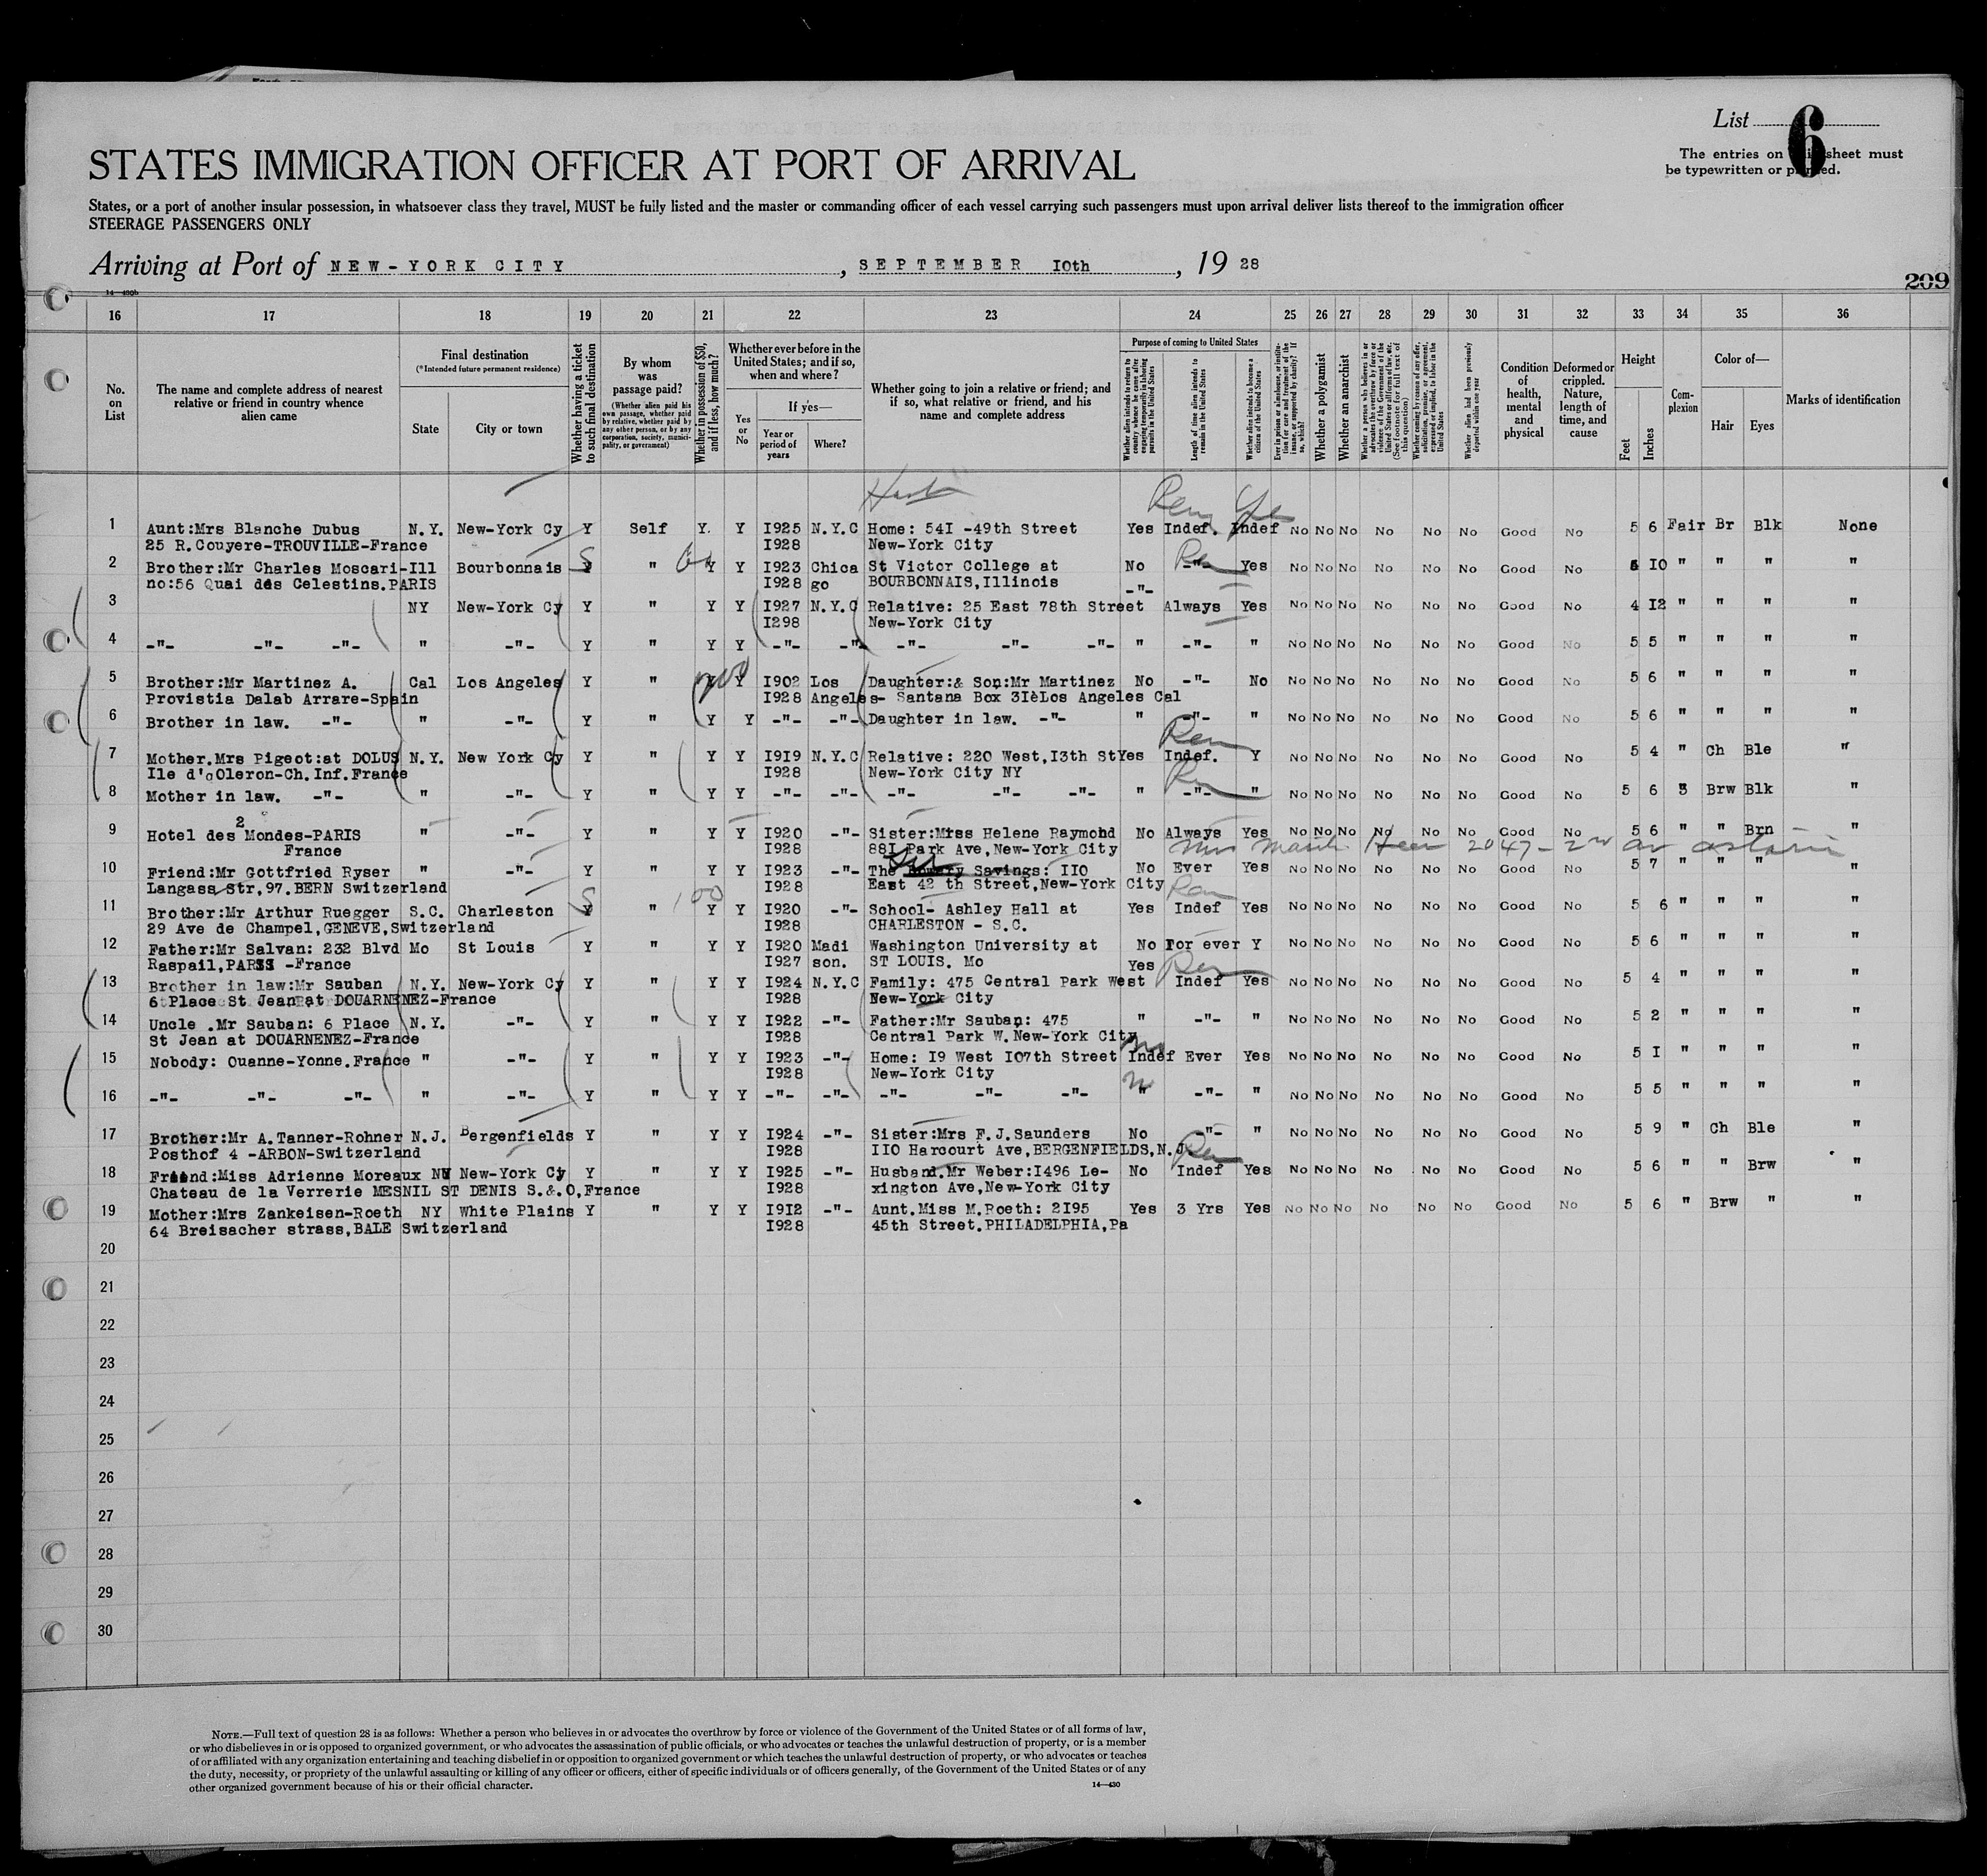 List 6
The entries on this sheet must
be typewritten or printed.
STATES IMMIGRATION OFFICER AT PORT OF ARRIVAL
States, or a port of another insular possession, in whatsoever class they travel, MUST be fully listed and the master or commanding officer of each vessel carrying such passengers must upon arrival deliver lists thereof to the immigration officer
STEERAGE PASSENGERS ONLY
Arriving at Port of NEW-YORK CITY, SEPTEMBER I0th, 19 28
209
14-430b
16 17 18 19 20 21 22 23 24 25 26 27 28 29 30 31 32 33 34 35 36
No. on List
The name and complete address of nearest relative or friend in country whence alien came
Final destination (*Intended future permanent residence)
State
City or town
Whether having a ticket to such final destination
By whom was passage paid?
(Whether alien paid his own passage, whether paid by relative, whether paid by any other person, or by any corporation, society, municipality, or government)
Whether in possession of $50, and if less, how much?
Whether ever before in the United States; and if so, when and where?
Yes or No
If yes—
Year or period of years
Where?
Whether going to join a relative or friend; and if so, what relative or friend, and his name and complete address
Purpose of coming to United States
Whether alien intends to return to country whence he came after engaging temporarily in laboring pursuits in the United States
Length of time alien intends to remain in the United States
Whether alien intends to become a citizen of the United States
Whether a polygamist
Whether an anarchist
Condition of health, mental and physical
Deformed or crippled. Nature, length of time, and cause
Height
Feet
Inches
Complexion
Color of—
Hair
Eyes
Marks of identification
Rem Yes
1 Aunt:Mrs Blanche Dubus N.Y. New-York Cy Y Self Y. Y I925 N.Y.C Home: 54I -49th Street Yes Indef. Indef No No No No No No Good No 5 6 Fair Br Blk None
25 R.Couyere-TROUVILLE-France I928 New-York City
2 Brother:Mr Charles Moscari-Ill Bourbonnais Y " Y Y I923 Chica St Victor College at No -"- Yes No No No No No No Good No 10 " " " "
no:56 Quai des Celestins.PARIS I928 go BOURBONNAIS,Illinois
3 NY New-York Cy Y " Y Y I927 N.Y.C Relative: 25 East 78th Street -"- Always Yes No No No No No No Good No 4 I2 " " " "
I298 New-York City
4 -"- -"- -"- " -"- Y " Y Y -"- -"- -"- -"- -"- " -"- " No No No No No No Good No 5 5 " " " "
5 Brother:Mr Martinez A. Cal Los Angeles Y " 200 Y I902 Los Daughter:& Son:Mr Martinez No -"- No No No No No No No Good No 5 6 " " " "
Provistia Dalab Arrare-Spain I928 Angeles- Santana Box 3IèLos Angeles Cal
6 Brother in law. -"- " -"- Y " Y Y -"- -"- Daughter in law. -"- " -"- " No No No No No No Good No 5 6 " " " "
Rem
7 Mother.Mrs Pigeot:at DOLUS N.Y. New York Cy Y " Y Y I9I9 N.Y.C Relative: 220 West,I3th St Yes Indef. Y No No No No No No Good No 5 4 " Ch Ble "
Ile d'Oleron-Ch.Inf.France I928 New-York City NY
8 Mother in law. -"- " -"- Y " Y Y -"- -"- -"- -"- -"- " -"- " No No No No No No Good No 5 6 " Brw Blk "
9 Hotel des 2 Mondes-PARIS " -"- Y " Y Y I920 -"- Sister:Miss Helene Raymond No Always Yes No No No No No No Good No 5 6 " " Brn "
France I928 88I Park Ave,New-York City
10 Friend:Mr Gottfried Ryser " -"- Y " Y Y I923 -"- The Bowery Savings: II0 No Ever Yes No No No No No No Good No 5 7 " " " "
Langass Str,97.BERN Switzerland I928 East 42 th Street,New-York City
11 Brother:Mr Arthur Ruegger S.C. Charleston Y " 100 Y Y I920 -"- School- Ashley Hall at Yes Indef Yes No No No No No No Good No 5 6 " " " "
29 Ave de Champel,GENEVE,Switzerland I928 CHARLESTON - S.C.
12 Father:Mr Salvan: 232 Blvd Mo St Louis Y " Y Y I920 Madi Washington University at No For ever Y No No No No No No Good No 5 6 " " " "
Raspail,PARIS -France I927 son. ST LOUIS. Mo
13 Brother in law:Mr Sauban N.Y. New-York Cy Y " Y Y I924 N.Y.C Family: 475 Central Park West Yes Indef Yes No No No No No No Good No 5 4 " " " "
6 Place St Jean at DOUARNENEZ-France I928 New-York City
14 Uncle .Mr Sauban: 6 Place N.Y. -"- Y " Y Y I922 -"- Father:Mr Sauban: 475 " -"- " No No No No No No Good No 5 2 " " " "
St Jean at DOUARNENEZ-France I928 Central Park W.New-York City
15 Nobody: Ouanne-Yonne.France " -"- Y " Y Y I923 -"- Home: I9 West I07th Street Indef Ever Yes No No No No No No Good No 5 I " " " "
I928 New-York City
16 -"- -"- -"- " -"- Y " Y Y -"- -"- -"- -"- -"- " -"- " No No No No No No Good No 5 5 " " " "
17 Brother:Mr A.Tanner-Rohner N.J. Bergenfields Y " Y Y I924 -"- Sister:Mrs F.J.Saunders No -"- " No No No No No No Good No 5 9 " Ch Ble "
Posthof 4 -ARBON-Switzerland I928 II0 Harcourt Ave,BERGENFIELDS,N.J.
18 Friend:Miss Adrienne Moreaux NY New-York Cy Y " Y Y I925 -"- Husband.Mr Weber:I496 Le- No Indef Yes No No No No No No Good No 5 6 " " Brw "
Chateau de la Verrerie MESNIL ST DENIS S.&.O,France I928 xington Ave,New-York City
19 Mother:Mrs Zankeisen-Roeth NY White Plains Y " Y Y I9I2 -"- Aunt.Miss M.Roeth: 2I95 Yes 3 Yrs Yes No No No No No No Good No 5 6 " Brw " "
64 Breisacher strass,BALE Switzerland I928 45th Street.PHILADELPHIA,Pa
20
21
22
23
24
25
26
27
28
29
30
NOTE.—Full text of question 28 is as follows: Whether a person who believes in or advocates the overthrow by force or violence of the Government of the United States or of all forms of law,
or who disbelieves in or is opposed to organized government, or who advocates the assassination of public officials, or who advocates or teaches the unlawful destruction of property, or is a member
of or affiliated with any organization entertaining and teaching disbelief in or opposition to organized government or which teaches the unlawful destruction of property, or who advocates or teaches
the duty, necessity, or propriety of the unlawful assaulting or killing of any officer or officers, either of specific individuals or of officers generally, of the Government of the United States or of any
other organized government because of his or their official character.
14-430